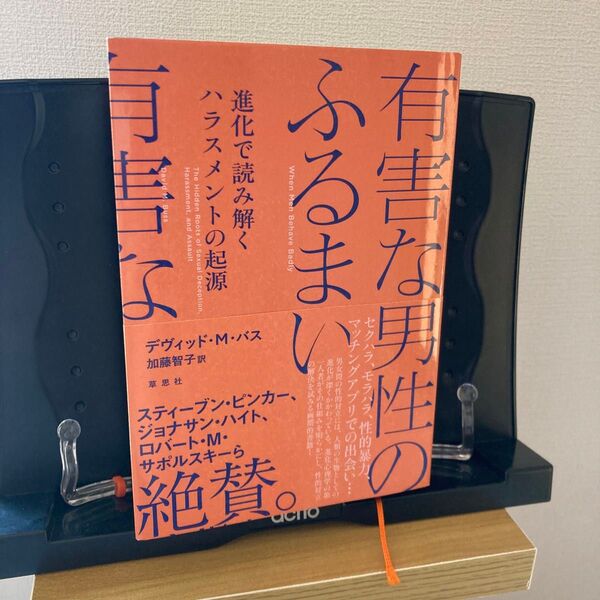 有害な男性の
ふるまい
When Men Behave Badly
進化で読み解く
ハラスメントの起源
The Hidden Roots of Sexual Deception,
Harassment, and Assault
有害な
David M. Buss
セクハラ、モラハラ、性的暴力、
マッチングアプリでの出会い…
デヴィッド・M・バス
加藤智子 訳
草思社
スティーブン・ピンカー、
ジョナサン・ハイト、
ロバート・M・
サポルスキーら
絶賛。